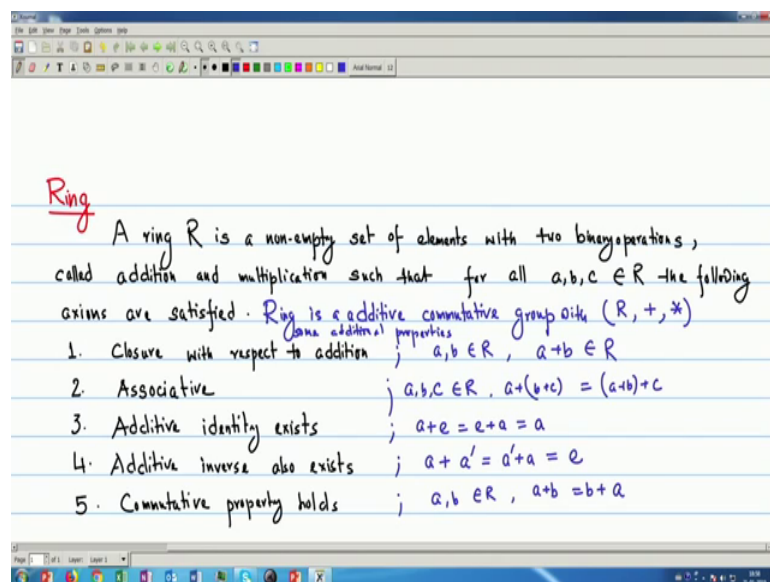 Xournal
File Edit View Page Tools Options Help
Arial Normal 12
Ring
A ring R is a non-empty set of elements with two binary operations,
called addition and multiplication such that for all a,b,c ∈ R the following
axioms are satisfied. Ring is a additive commutative group with (R, +, *)
some additional properties
1. Closure with respect to addition ; a,b ∈ R, a+b ∈ R
2. Associative ; a,b,c ∈ R, a+(b+c) = (a+b)+c
3. Additive identity exists ; a+e = e+a = a
4. Additive inverse also exists ; a+a' = a'+a = e
5. Commutative property holds ; a,b ∈ R, a+b = b+a
Page 1 of 1 Layer: Layer 1